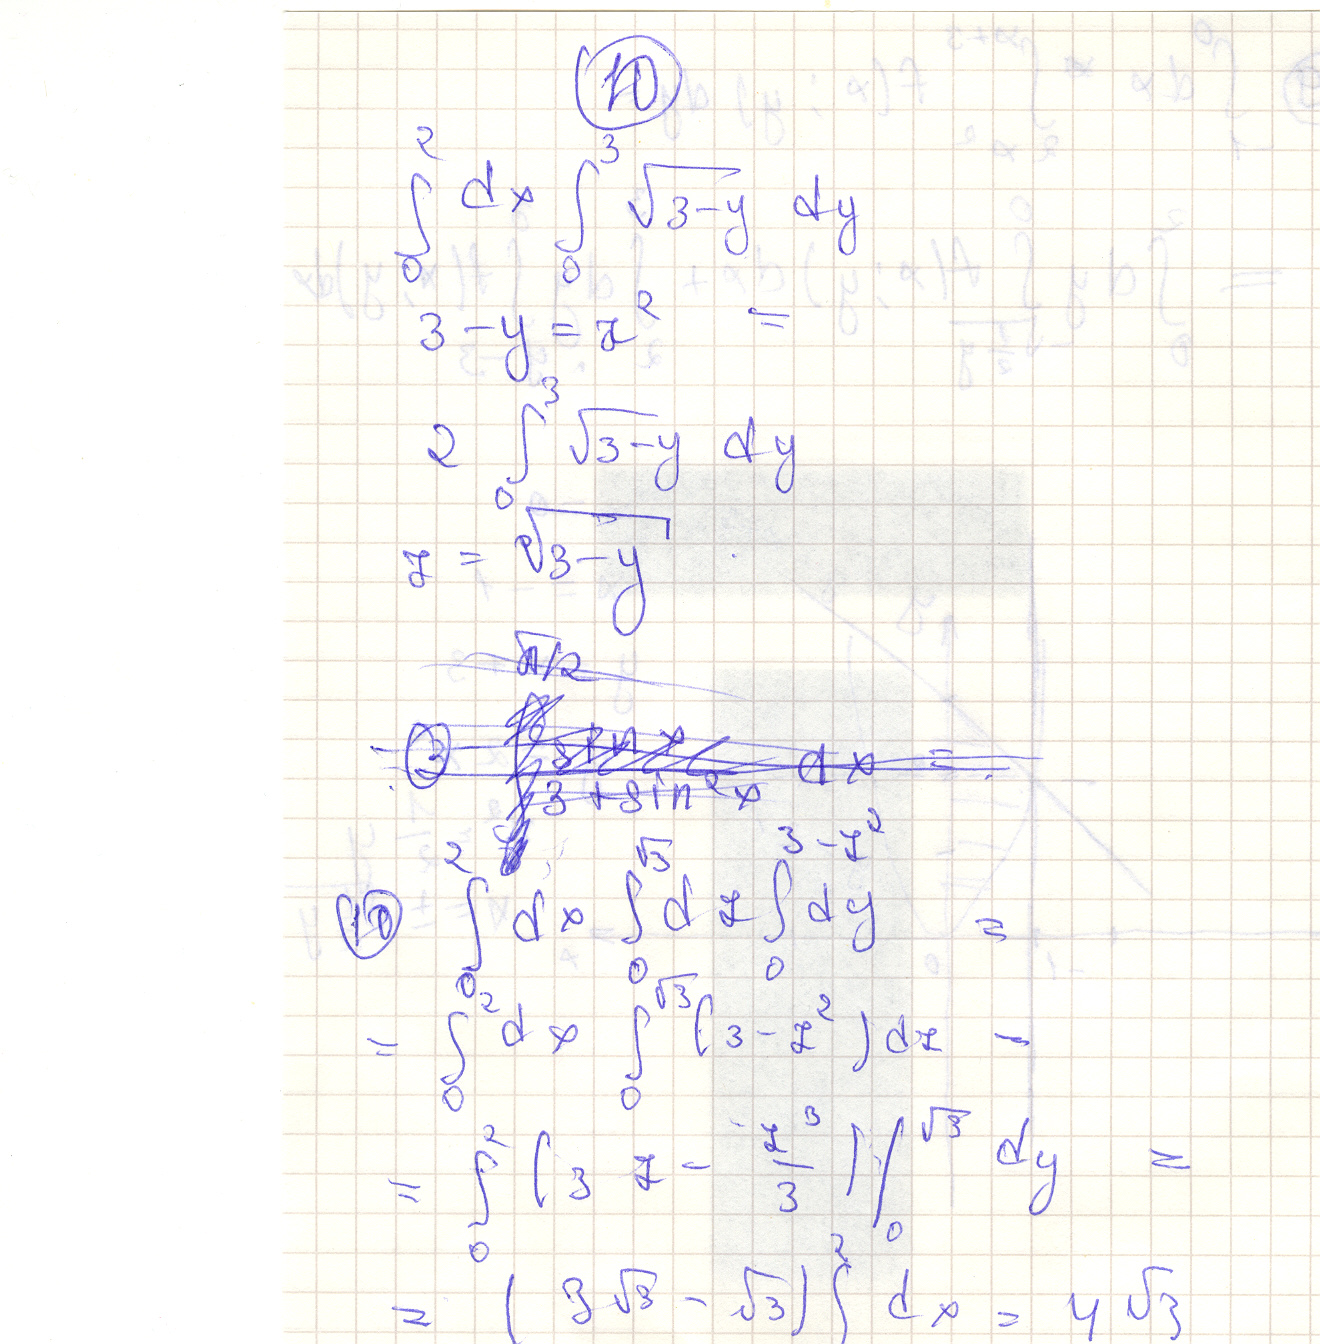 10
∫₀² dx ∫₀³ √(3-y) dy
3-y = z² =
2 ∫₀³ √(3-y) dy
z = √(3-y)
π/2
3 sin x / 3+sin²x dx =
10 ∫₀² dx ∫₀^√3 dz ∫₀^(3-z²) dy =
= ∫₀² dx ∫₀^√3 (3-z²) dz -
= ∫₀² (3z - z³/3) |₀^√3 dy =
= (3√3 - √3) ∫² dx = 4√3